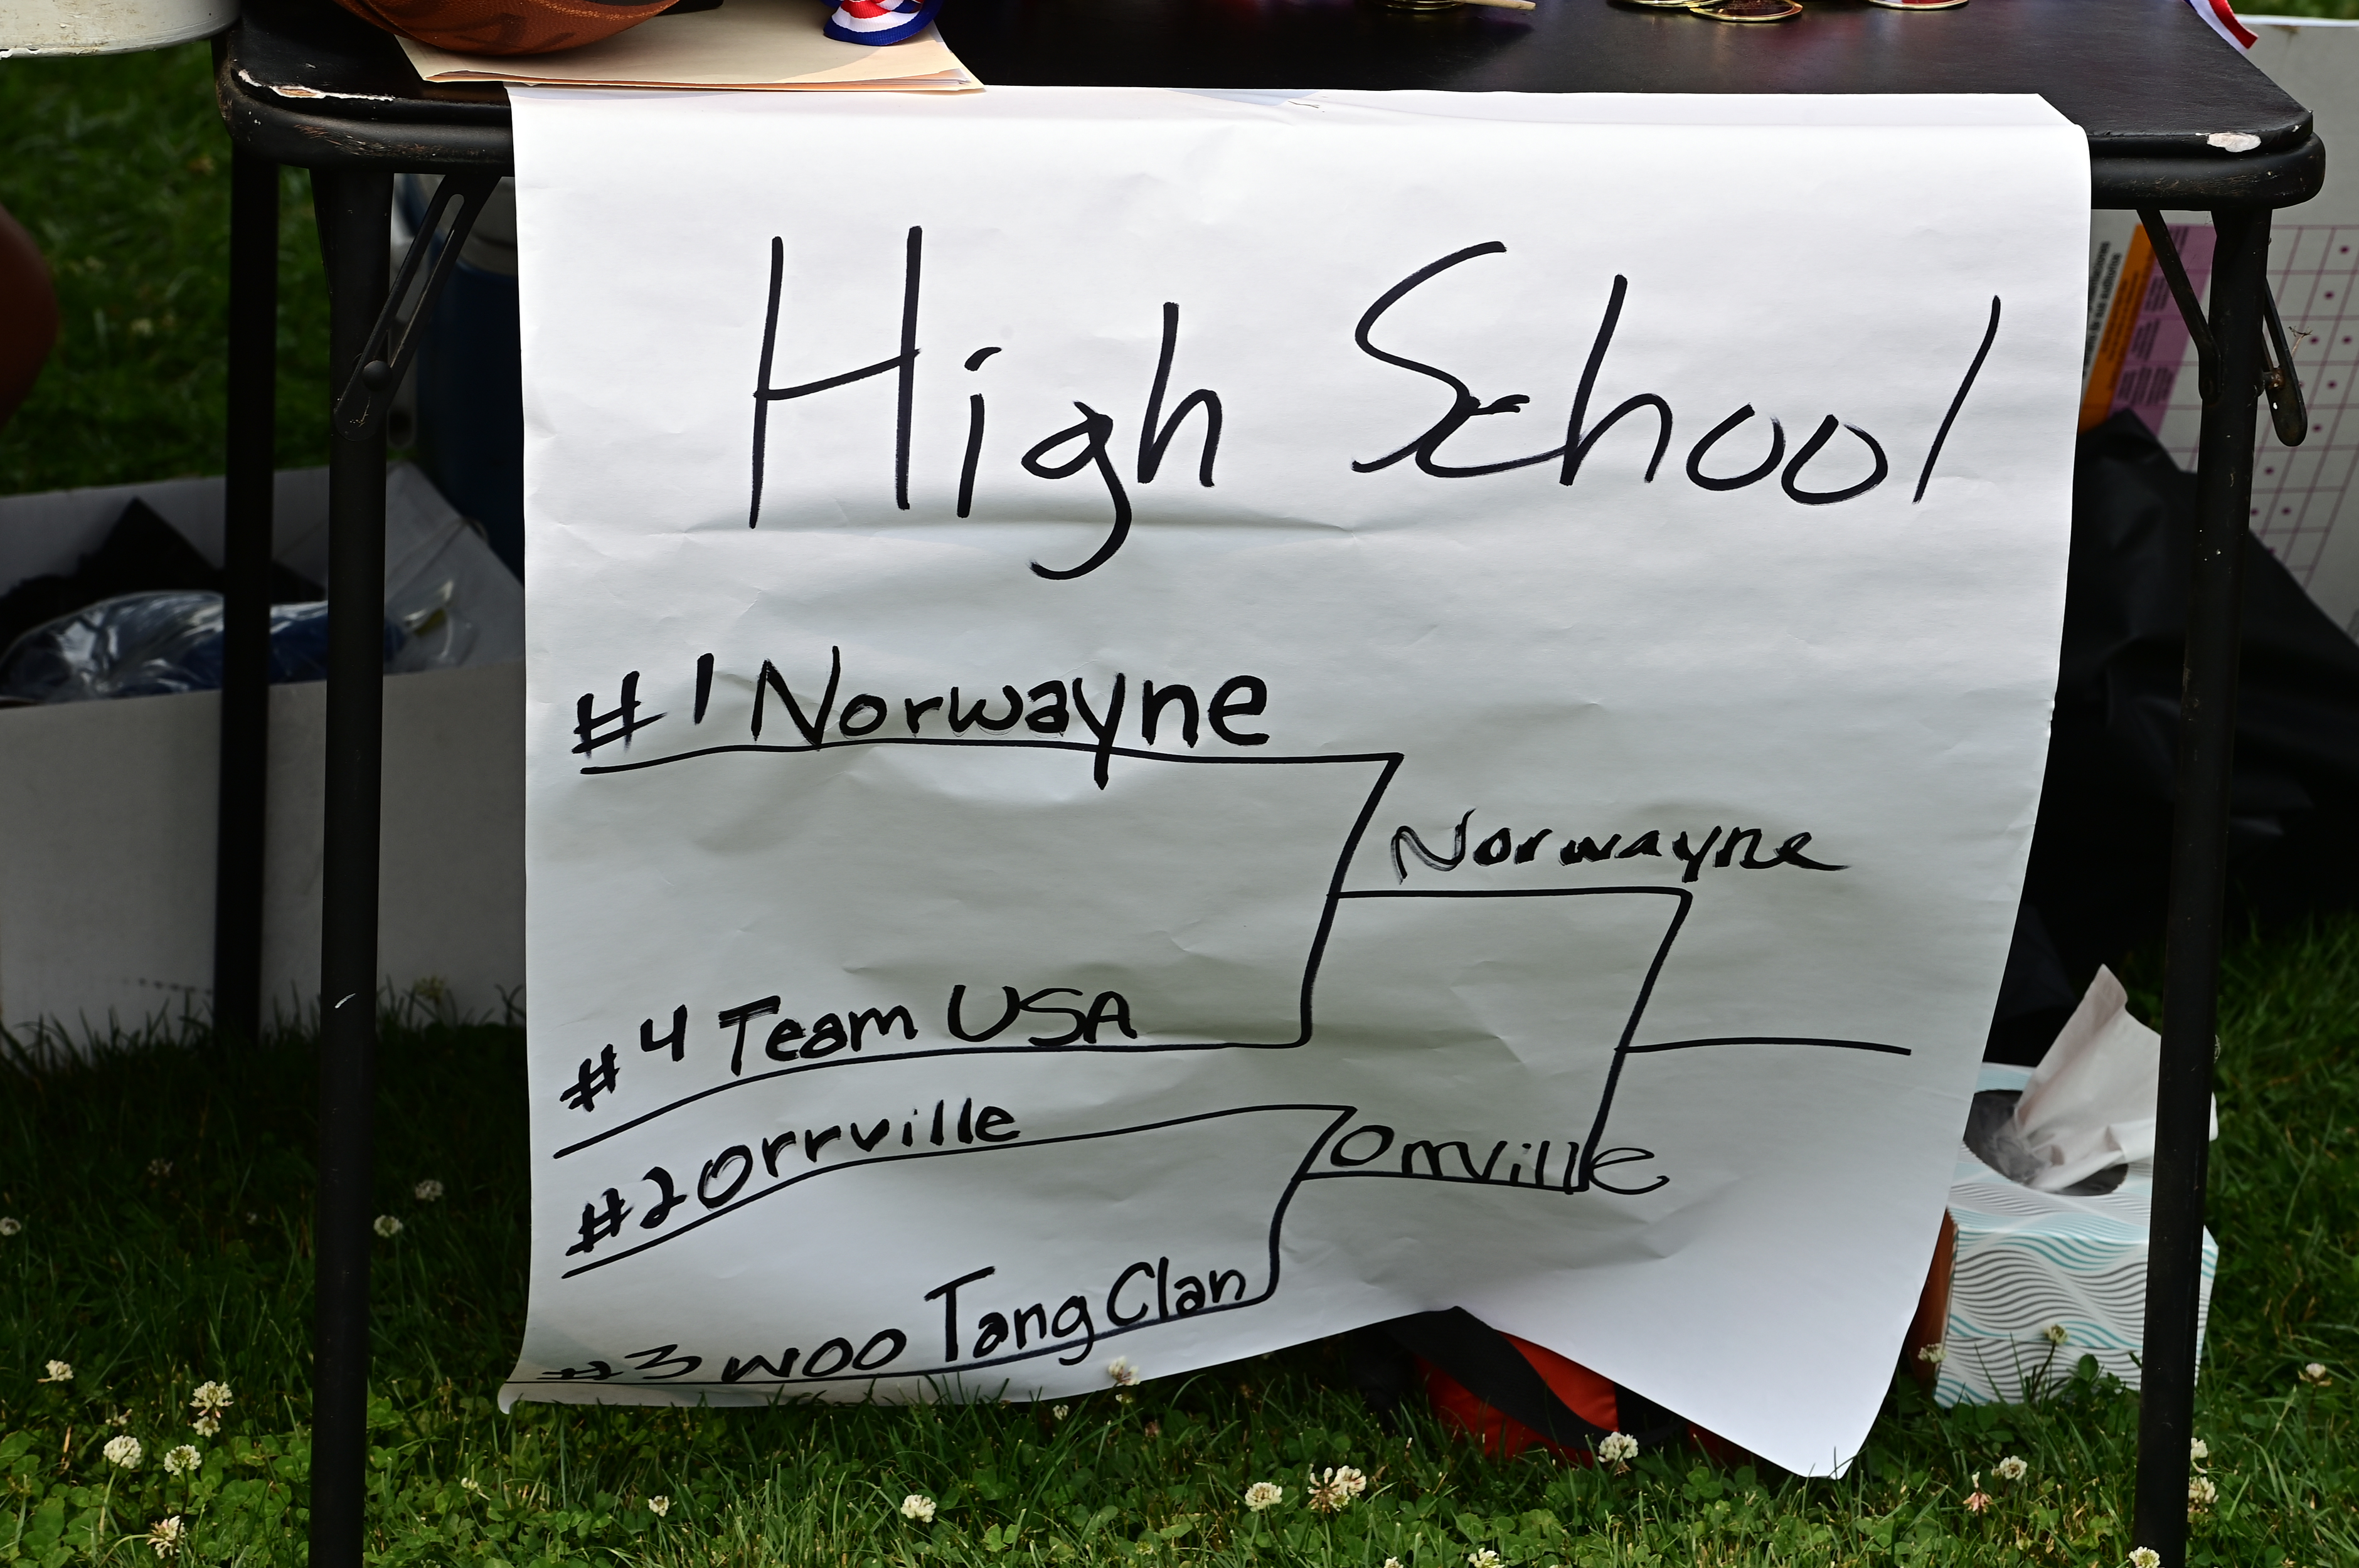 High School
#1 Norwayne
Norwayne
#4 Team USA
#2 Orrville
Orrville
#3 woo Tang Clan